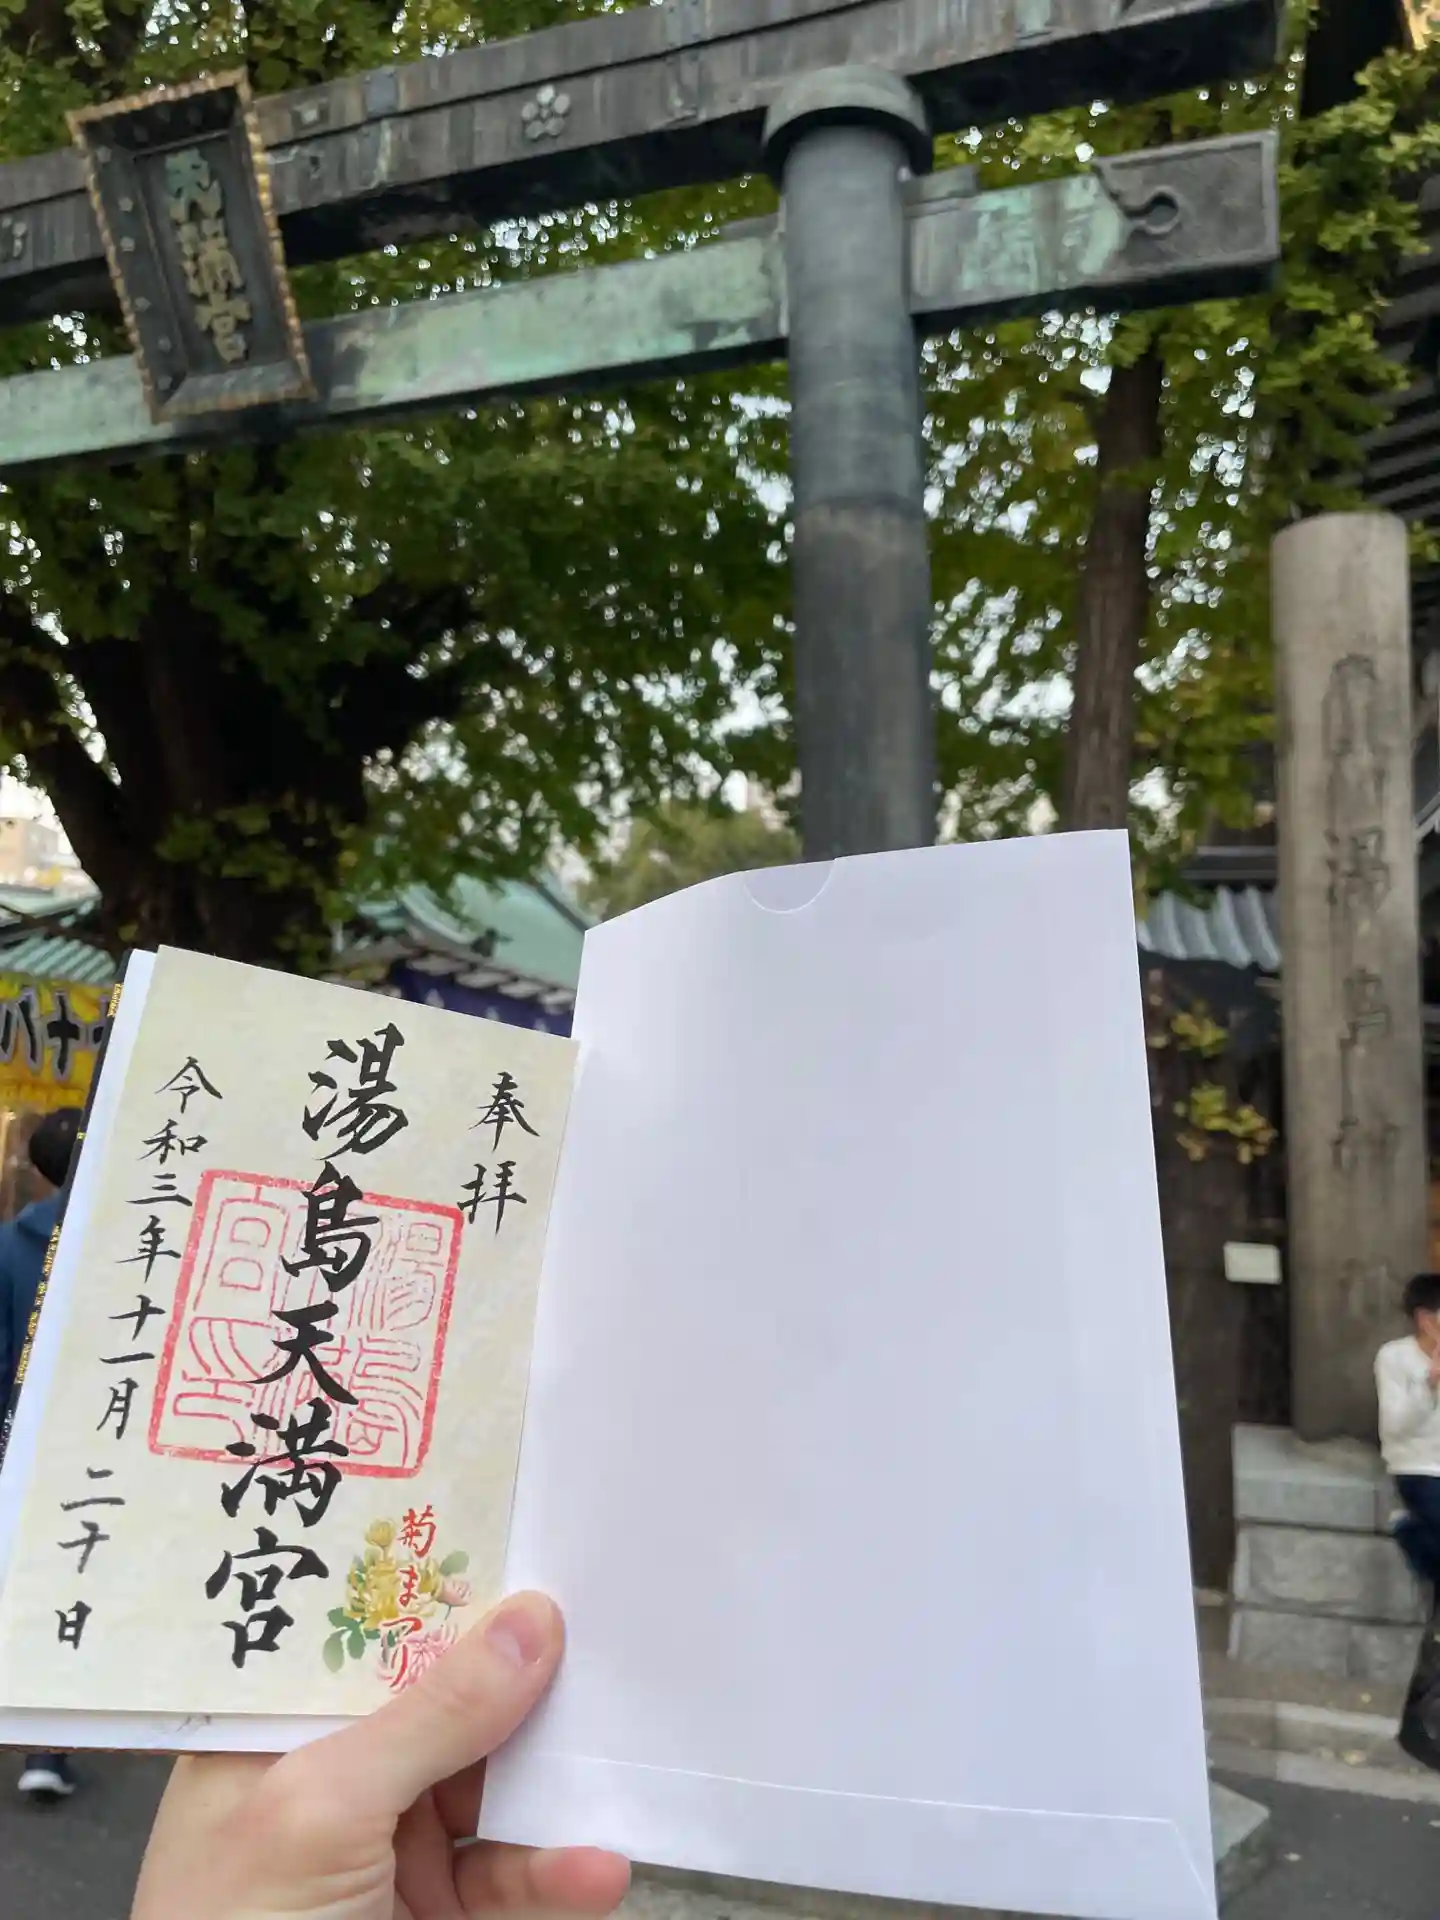 天満宮
湯島神
八十
奉拝
湯島天満宮
令和三年十一月二十日
菊まつり
湯島天満宮印